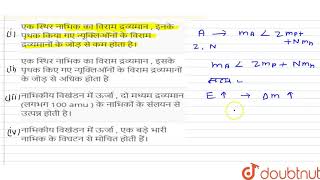 (i) एक स्थिर नाभिक का विराम द्रव्यमान , इनके
पृथक किया गए न्यूक्लिऑनों के विराम
द्रव्यमानों के जोड़ से कम होता है।
(ii) एक स्थिर नाभिक का विराम द्रव्यमान , इसके
पृथक किए गए न्यूक्लिऑनों के विराम द्रव्यमानों
के जोड़ से अधिक होता है
(iii) नाभिकीय विखंडन में ऊर्जा , दो मध्यम द्रव्यमान
(लगभग 100 amu ) के नाभिकों के संलयन से
उत्पन्न होती है।
(iv) नाभिकीय विखंडन में ऊर्जा , एक बड़े भारी
नाभिक के विघटन से मोचित होती है।
A → mA < Zmp+
Z, N +Nmn
mA < Zmp
+ Nmn
E ↑ → Dm ↑
doubtnut